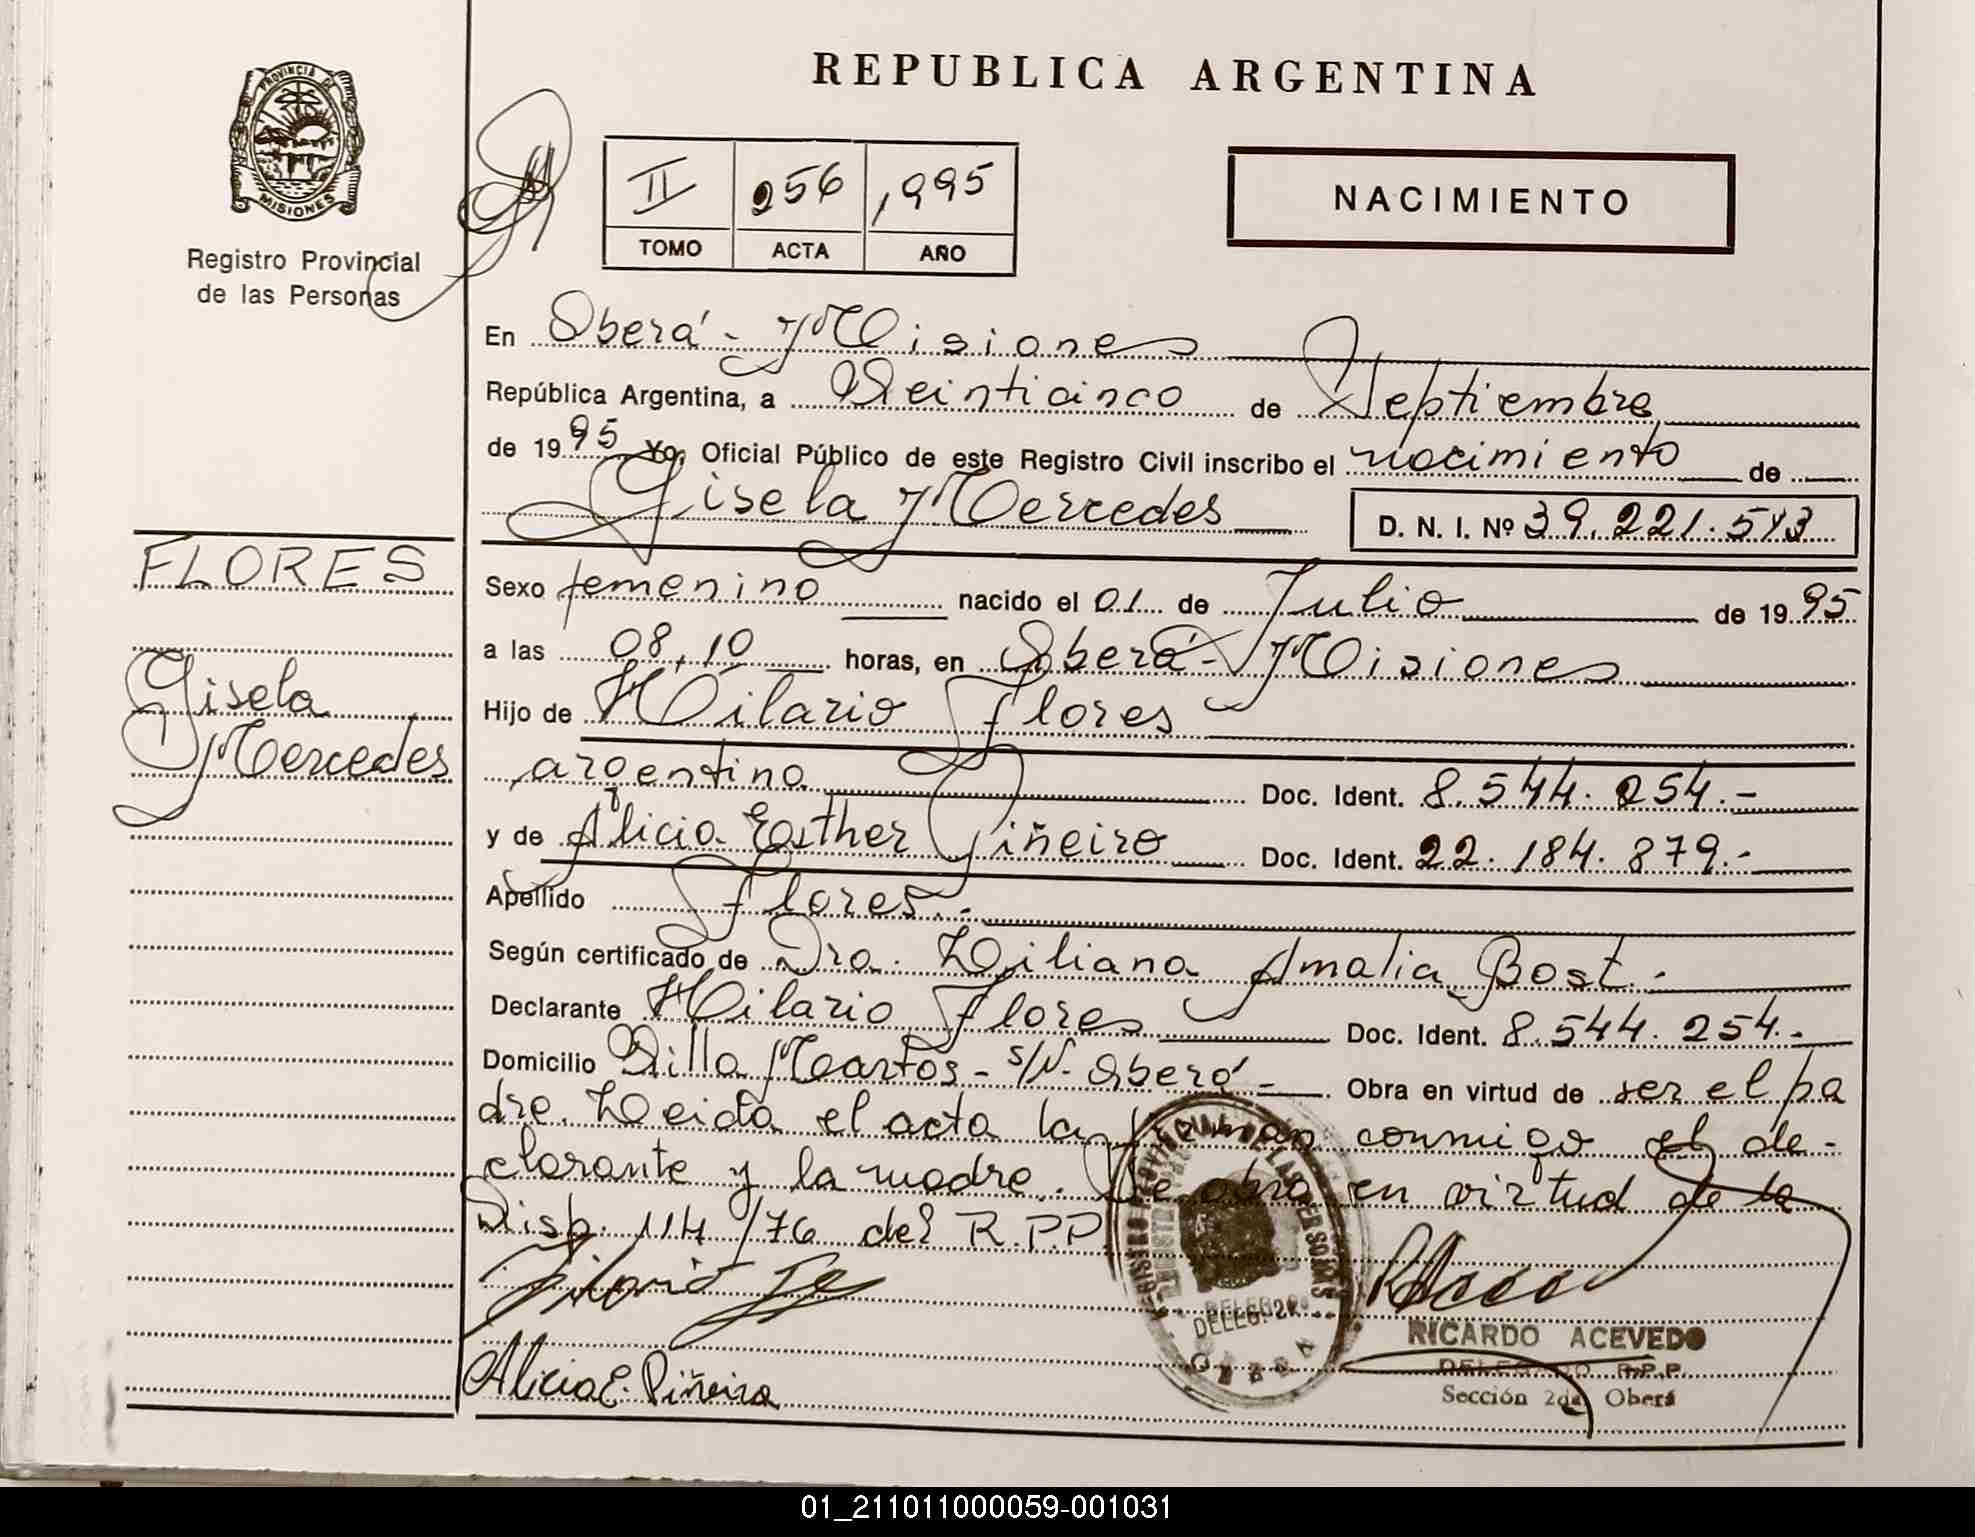 REPUBLICA ARGENTINA
PROVINCIA DE
MISIONES
Registro Provincial
de las Personas
II 256 1995
TOMO ACTA AÑO
NACIMIENTO
En Oberá - Misiones
República Argentina, a Veinticinco de Septiembre
de 1995 Yo, Oficial Público de este Registro Civil inscribo el nacimiento de
Gisela Mercedes D. N. I. Nº 39.221.513
FLORES
Gisela
Mercedes
Sexo femenino nacido el 01 de Julio de 1995
a las 08,10 horas, en Oberá - Misiones
Hijo de Hilario Flores
argentino Doc. Ident. 8.544.254.-
y de Alicia Esther Piñeiro Doc. Ident. 22.184.879.-
Apellido Flores.-
Según certificado de Dra. Liliana Amalia Bost.-
Declarante Hilario Flores Doc. Ident. 8.544.254.-
Domicilio Villa Martos - s/N - Oberá - Obra en virtud de ser el pa
dre. Leida el acta la firman conmigo el de-
clarante y la madre. Se obra en virtud de la
Disp. 114/76 del R.P.P.
Alicia E. Piñeiro
DELEG.
OBERA
RICARDO ACEVEDO
DELEGADO R.P.P.
Sección 2da Oberá
01_211011000059-001031